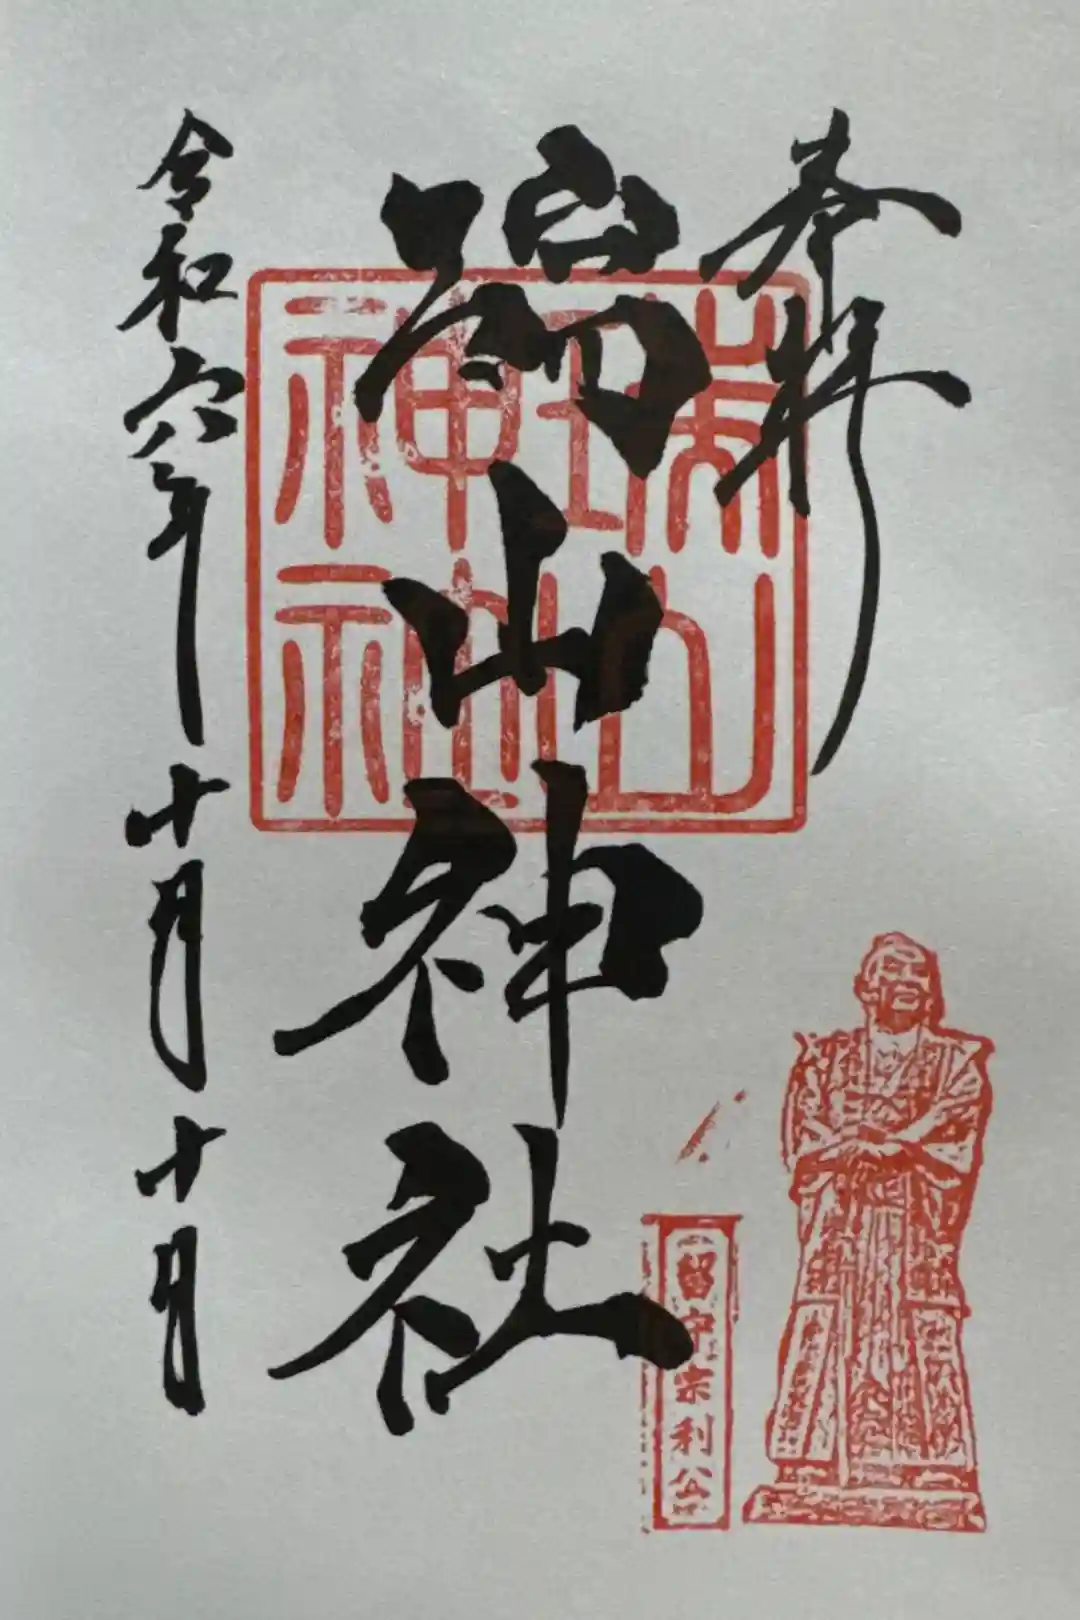 奉拝
瑞山神社
令和六年十月十日
瑞山
神社
留守宗利公